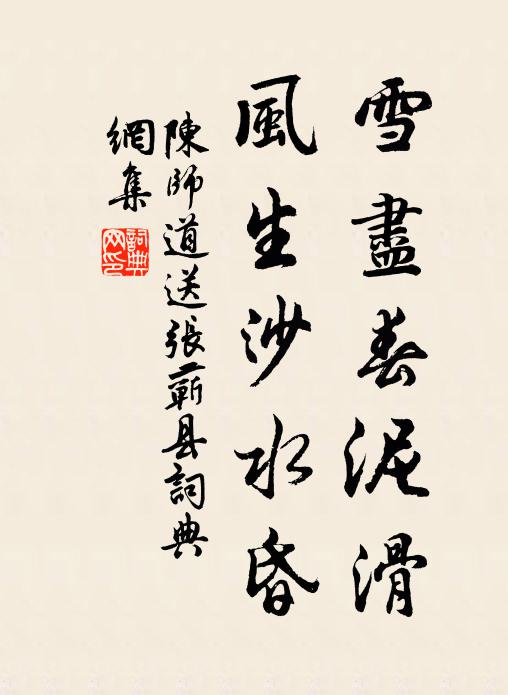 雪盡春泥滑
風生沙水昏
陳師道送張蘄县詞典
網集
詞典網印